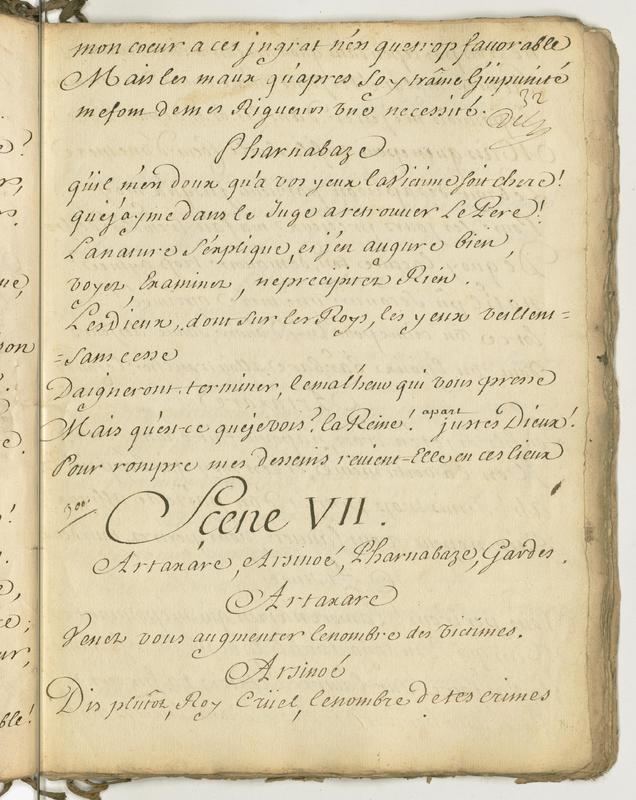 mon coeur a cet jngrat n'est que trop favorable
Mais les maux qu'apres soy traîne l'impunité
me font de mes Rigueurs vne necessité.
32
Pharnabaze
qu'il m'en doux qu'a vos yeux la victime soit chere!
que j'ayme dans le Juge a retrouver Le Pere!
La nature S'éxplique, et j'en augure bien,
voyez, Examinez, ne precipitez Rien.
Les Dieux, dont sur les Roys, les yeux veillent=
=sans cesse
Daigneront terminer, le malheur qui vous presse
Mais qu'est-ce que je vois? la Reine! apart justes Dieux!
Pour rompre mes desseins revient=Elle en ces lieux
Scene VII.
Artaxare, Arsinoé, Pharnabaze, Gardes.
Artaxare
Venez vous augmenter le nombre des victimes.
Arsinoé
Dis plutôt, Roy Crüel, le nombre de tes crimes